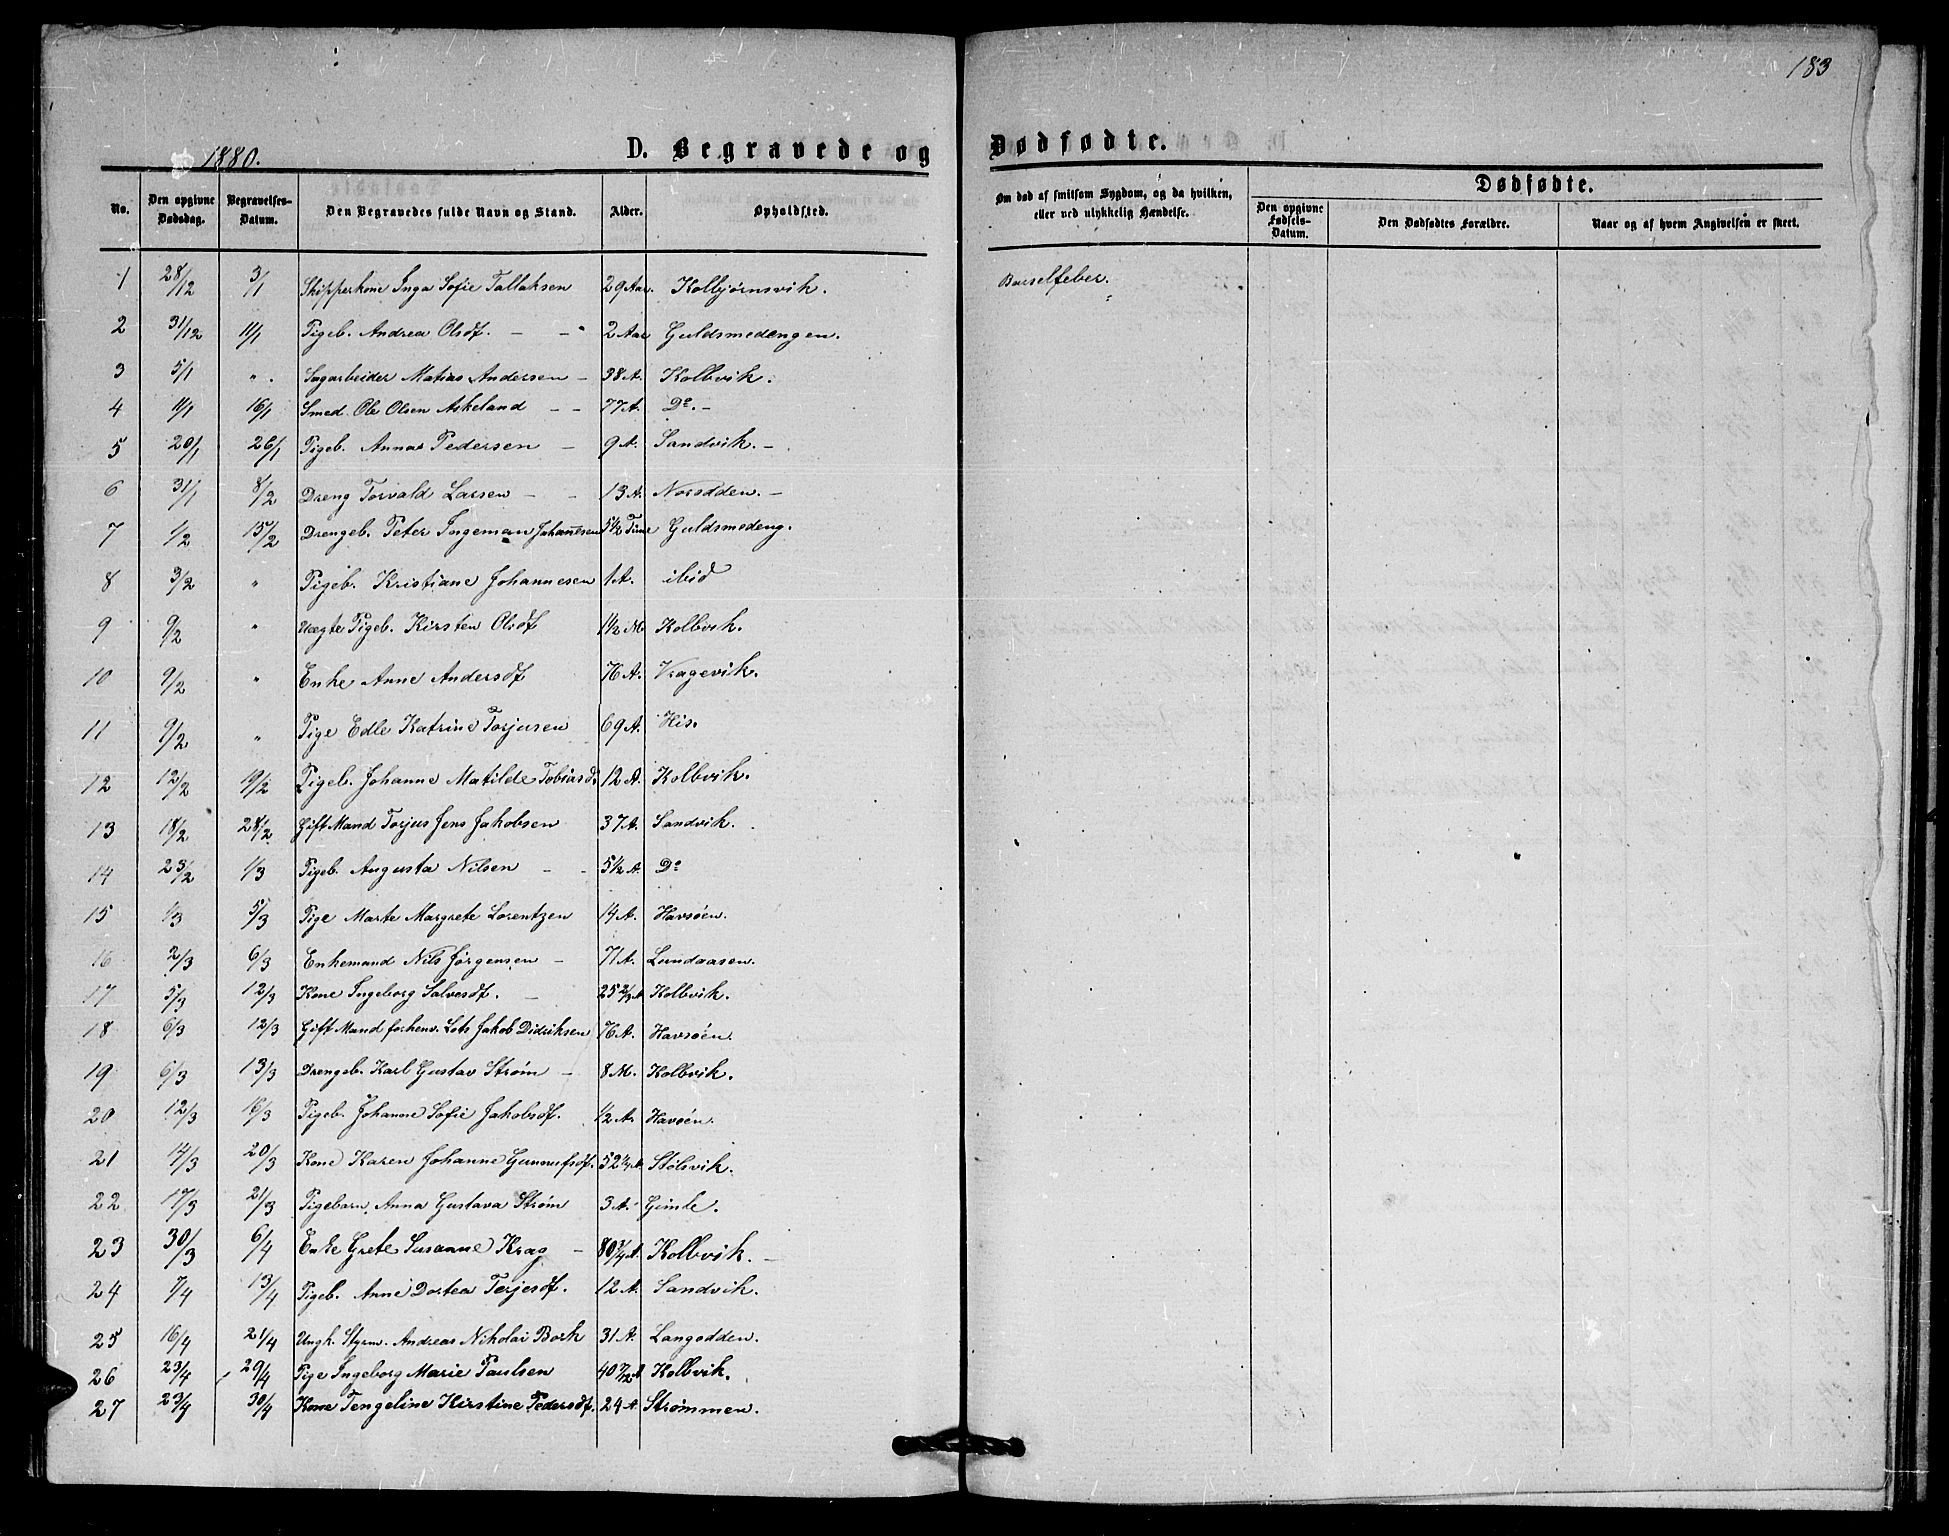 183
1880.
D. Begravede og
Dødfødte.
No. Den opgivne Dødsdag. Begravelses-Datum. Den Begravedes fulde Navn og Stand. Alder. Opholdsted.
Om død af smitsom Sygdom, og da hvilken, eller ved ulykkelig Hændelse. Dødfødte.
Den opgivne Fødsels-Datum. Den Dødfødtes Forældre. Naar og af hvem Angivelsen er skeet.
1 28/12 3/1 Skipperkone Inga Sofie Tallaksen 29 Aar. Kolbjørnsvik. Barselfeber.
2 31/12 11/1 Pigeb. Andrea Olsdt. - - 2 Aar Guldsmedengen.
3 5/1 ". Sagarbeider Matias Andersen - 38 A. Kolbvik.
4 11/1 16/1 Smed. Ole Olsen Askeland - - 77 A. Do. -
5 20/1 26/1 Pigeb. Anna Pedersen - 9 A. Sandvik. -
6 31/1 8/2 Dreng Torvald Larsen - - 13 A. Norodden. -
7 1/2 15/2 Drengeb. Peter Ingeman Johannesen 5 1/2 Time Guldsmedeng.
8 3/2 " Pigeb. Kristiane Johannesen 1 A. ibid
9 9/2 " Uægte Pigeb. Kirsten Olsdt 1 1/2 M. Kolbvik.
10 9/2 " Enke Anne Andersdt 76 A. Vragevik.
11 9/2 " Pige Edle Katrine Torjusen 69 A. His.
12 12/2 19/2 Pigeb. Johanne Matilde Tobiasd. 12 A. Kolbvik.
13 18/2 28/2 Gift Mand Torjus Jens Jakobsen 37 A. Sandvik.
14 23/2 1/3 Pigeb. Augusta Nilsen - - 5 1/2 A. Do
15 1/3 5/3 Pige Marte Margrete Lorentzen 14 A. Havsøen.
16 2/3 6/3 Enkemand Nils Jørgensen - 71 A. Lundaasen.
17 5/3 12/3 Kone Ingeborg Salvesdt. - 25 2/3 A Kolbvik.
18 6/3 12/3 Gift Mand forhenv. Lots Jakob Didriksen 76 A. Havsøen.
19 6/3 13/3 Drengeb. Karl Gustav Strøm - 8 M. Kolbvik.
20 12/3 18/3 Pigeb. Johanne Sofie Jakobsdt. 1/2 A. Havsøen.
21 14/3 20/3 Kone Karen Johanne Gunnufsdt. 52 A Stølsvik.
22 17/3 21/3 Pigebarn Anna Gustava Strøm 3 A. Gimle.
23 30/3 6/4 Enke Grete Susanne Krag - 80 3/4 A. Kolbvik. -
24 7/4 13/4 Pigeb. Anne Dortea Terjesdt. 12 A. Sandvik.
25 16/4 21/4 Ungk. Styrm. Andreas Nikolai Bork 31 A. Langodden.
26 23/4 29/4 Pige Ingeborg Marie Paulsen 40 7/12 A Kolbvik.
27 23/4 30/4 Kone Tengeline Kirstine Pedersdt. 24 A Strømmen.